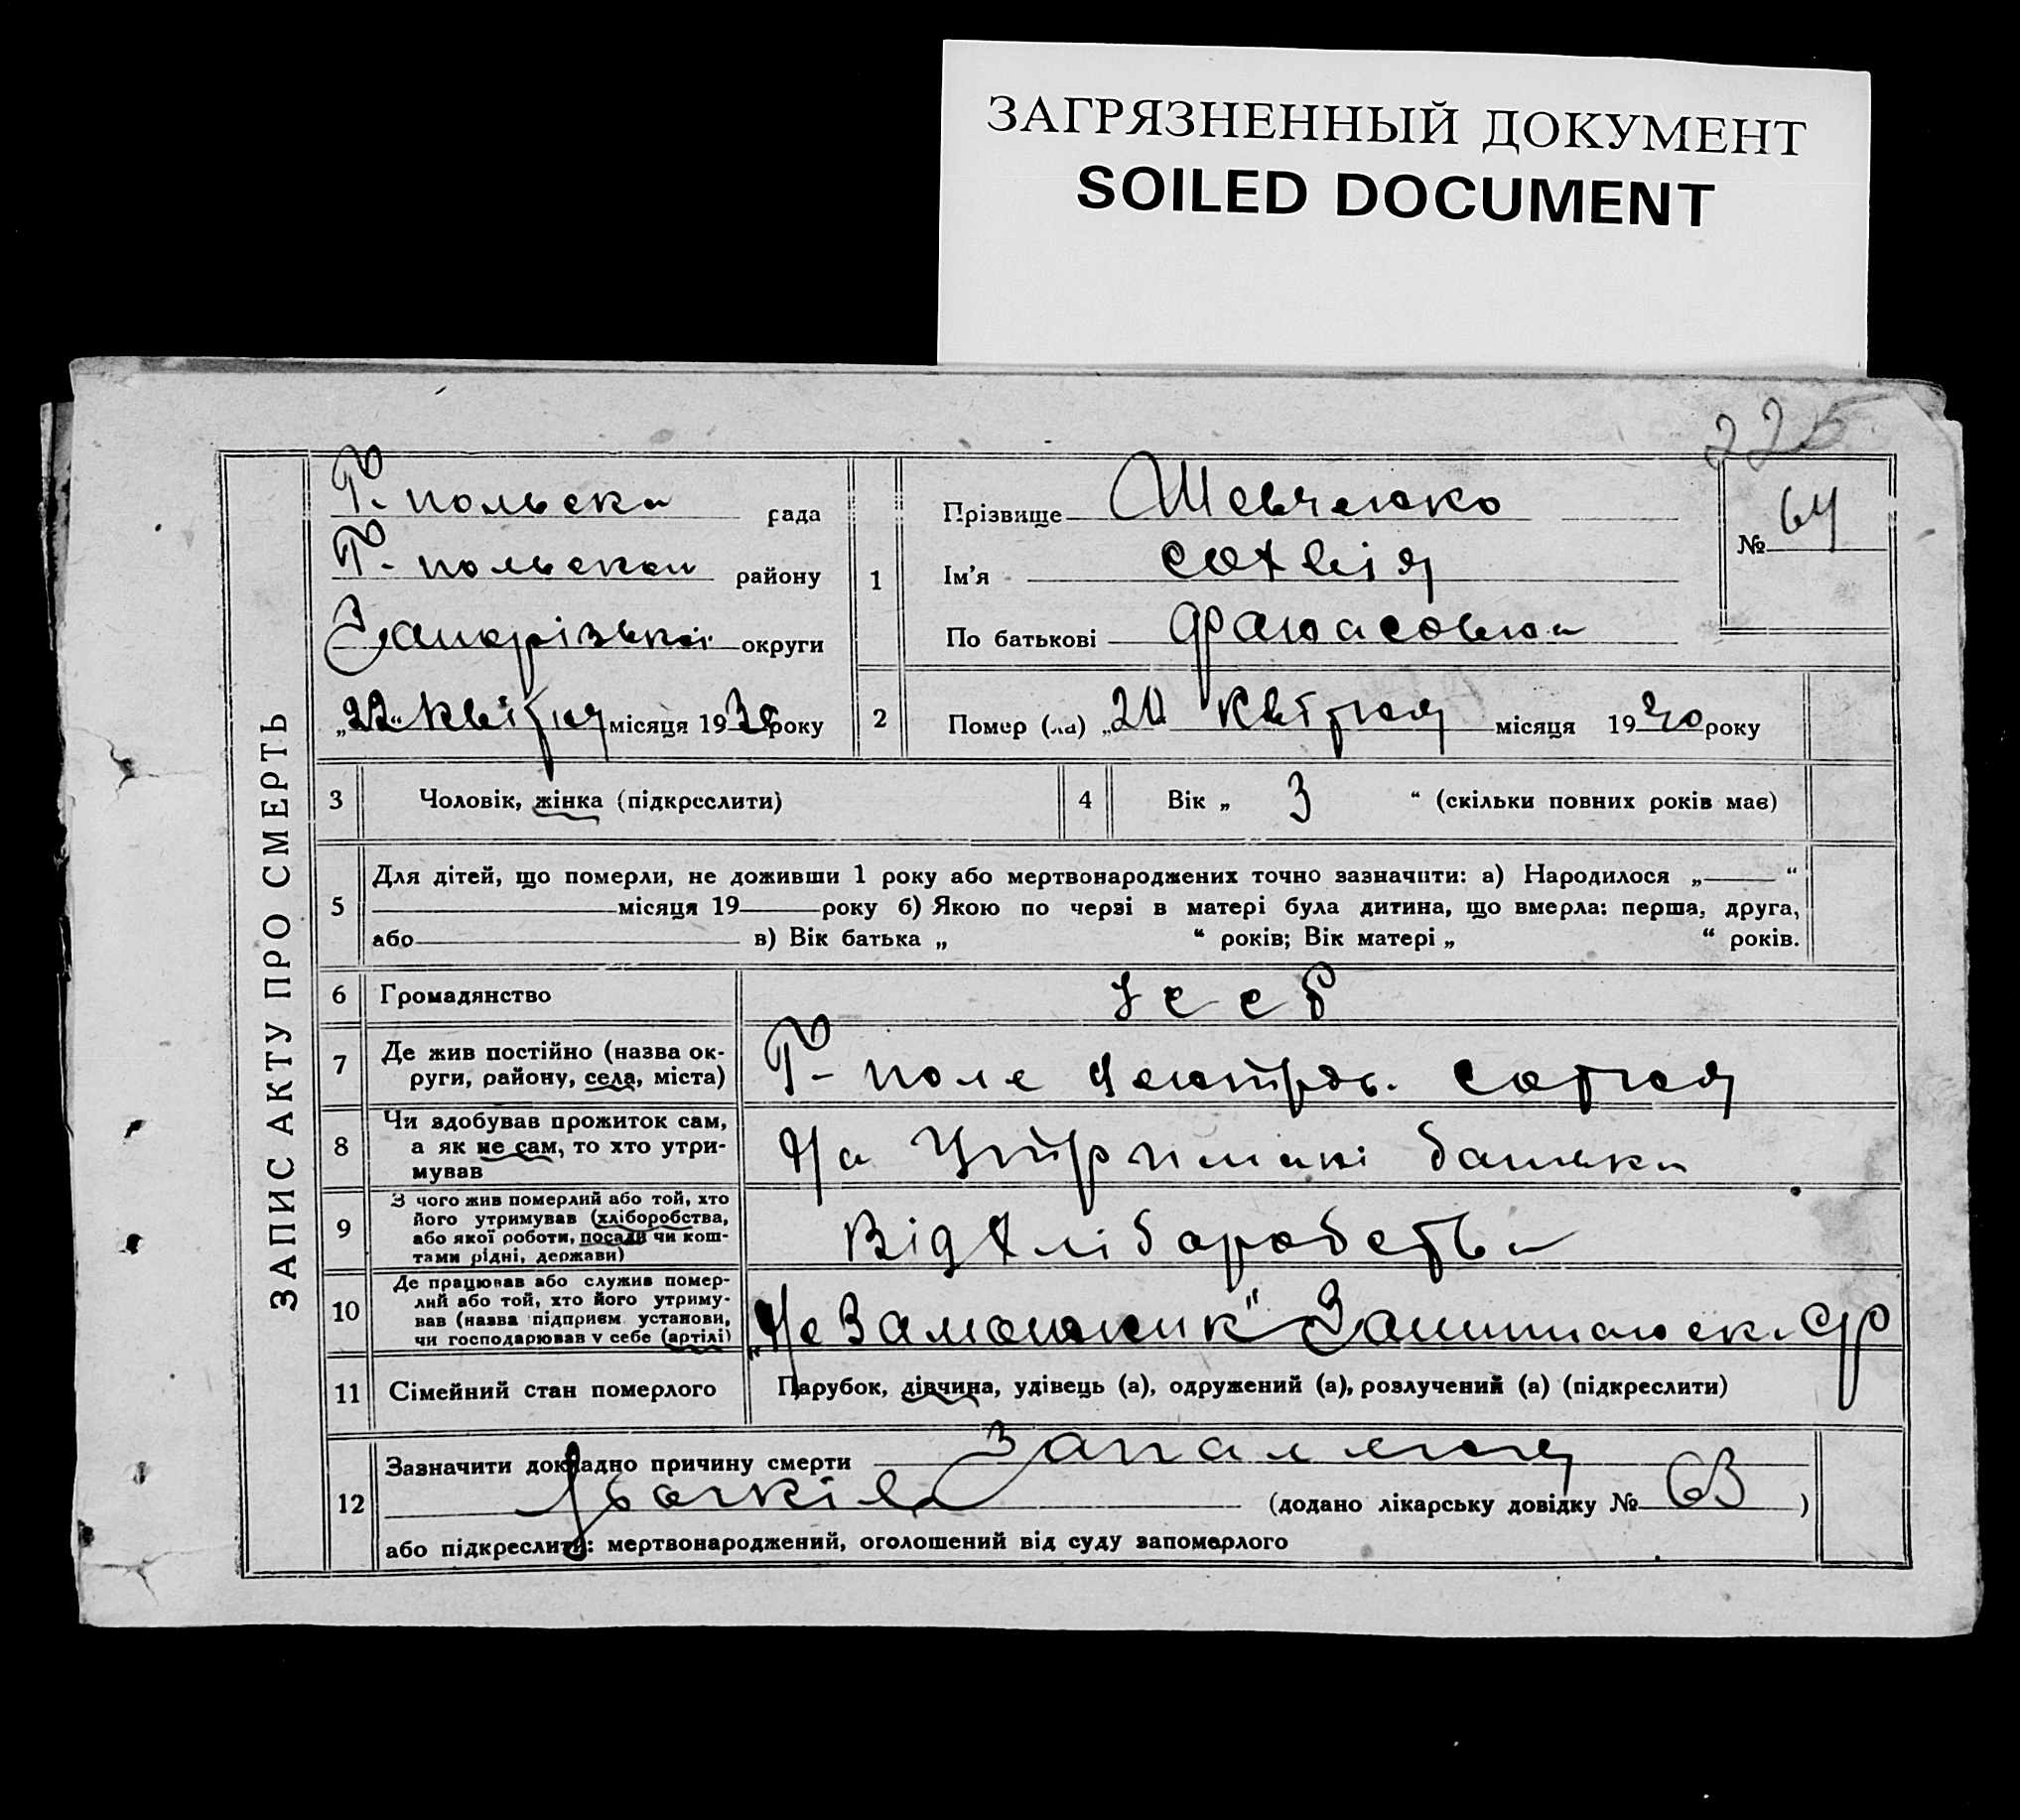 ЗАГРЯЗНЕННЫЙ ДОКУМЕНТ
SOILED DOCUMENT
225
ЗАПИС АКТУ ПРО СМЕРТЬ
Г-польська рада
Г-польского району
Запорізької округи
„22“ квітня місяця 1930 року
1
Прізвище Шевченко
Ім'я Софія
По батькові Фанасовна
№ 64
2
Помер (ла) „20 квітня місяця 1930 року
3
Чоловік, жінка (підкреслити)
4
Вік „ 3 “ (скільки повних років має)
5
Для дітей, що померли, не доживши 1 року або мертвонароджених точно зазначити: а) Народилося „ “
місяця 19 року б) Якою по черзі в матері була дитина, що вмерла: перша, друга,
або в) Вік батька „ “ років; Вік матері „ “ років.
6
Громадянство
УССР
7
Де жив постійно (назва ок-
руги, району, села, міста)
Г-поле Центр. сотня
8
Чи здобував прожиток сам,
а як не сам, то хто утри-
мував
На утримані батька
9
З чого жив померлий або той, хто
його утримував (хліборобства,
або якої роботи, посади чи кош-
тами рідні, держави)
Від хліборобства
10
Де працював або служив помер-
лий або той, хто його утриму-
вав (назва підприєм. установи,
чи господарював у себе (артілі)
„Незаможник“
11
Сімейний стан померлого
Парубок, дівчина, удівець (а), одружений (а), розлучений (а) (підкреслити)
12
Зазначити докладно причину смерти запалення
(додано лікарську довідку № 63 )
або підкреслити: мертвонароджений, оголошений від суду запомерлого